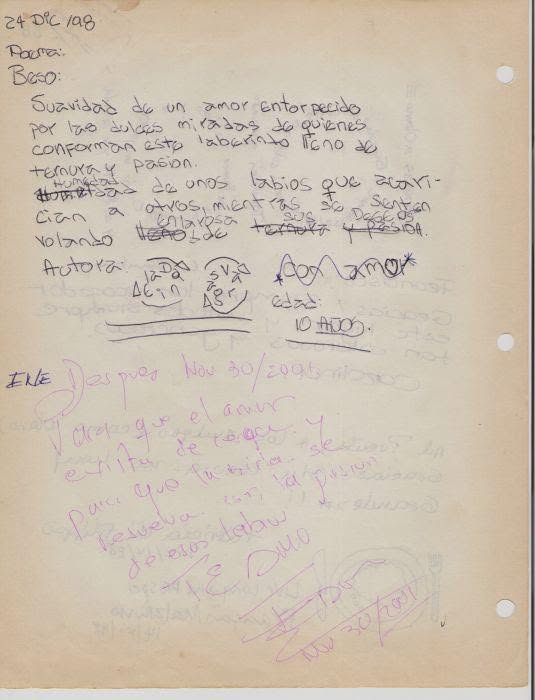 24 DIC 198
Poema:
Beso:
Suavidad de un amor entorpecido
por las dulces miradas de quienes
conforman este laberinto lleno de
ternura y pasion.
Humedad de unos labios que acari-
cian a otros, mientras se sienten
volando en la rosa de sus Deseos
ternura y pasion.
Autora:
con amor
edad:
10 AÑOS.
ENE
Despues Nov 30/2001
Para que el amor
exista de toque y
Para que la vida se
resuelva con la pasion
de esos labios
E DMO
Nov 30/2001